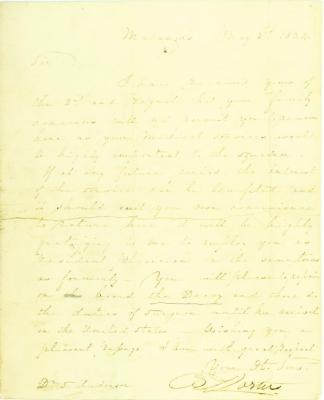 Matanzas May 2d 1824
Sir
I have received yours of
the 2d and regret that your family
concerns will not permit you to remain
here as your medical services would
be highly important to the squadron.
If at any future period the interest
of the service can be benefited and
it should suit your own convenience
to return here it will be highly
gratifying to me to employ you as
resident Physician in the same
as formerly. You will please to repair
on board the Decoy and there do
the duties of Surgeon until her arrival
in the United States. Wishing you a
pleasant passage I am with great respect
Your Ob. Servt.
D. Porter
Dr